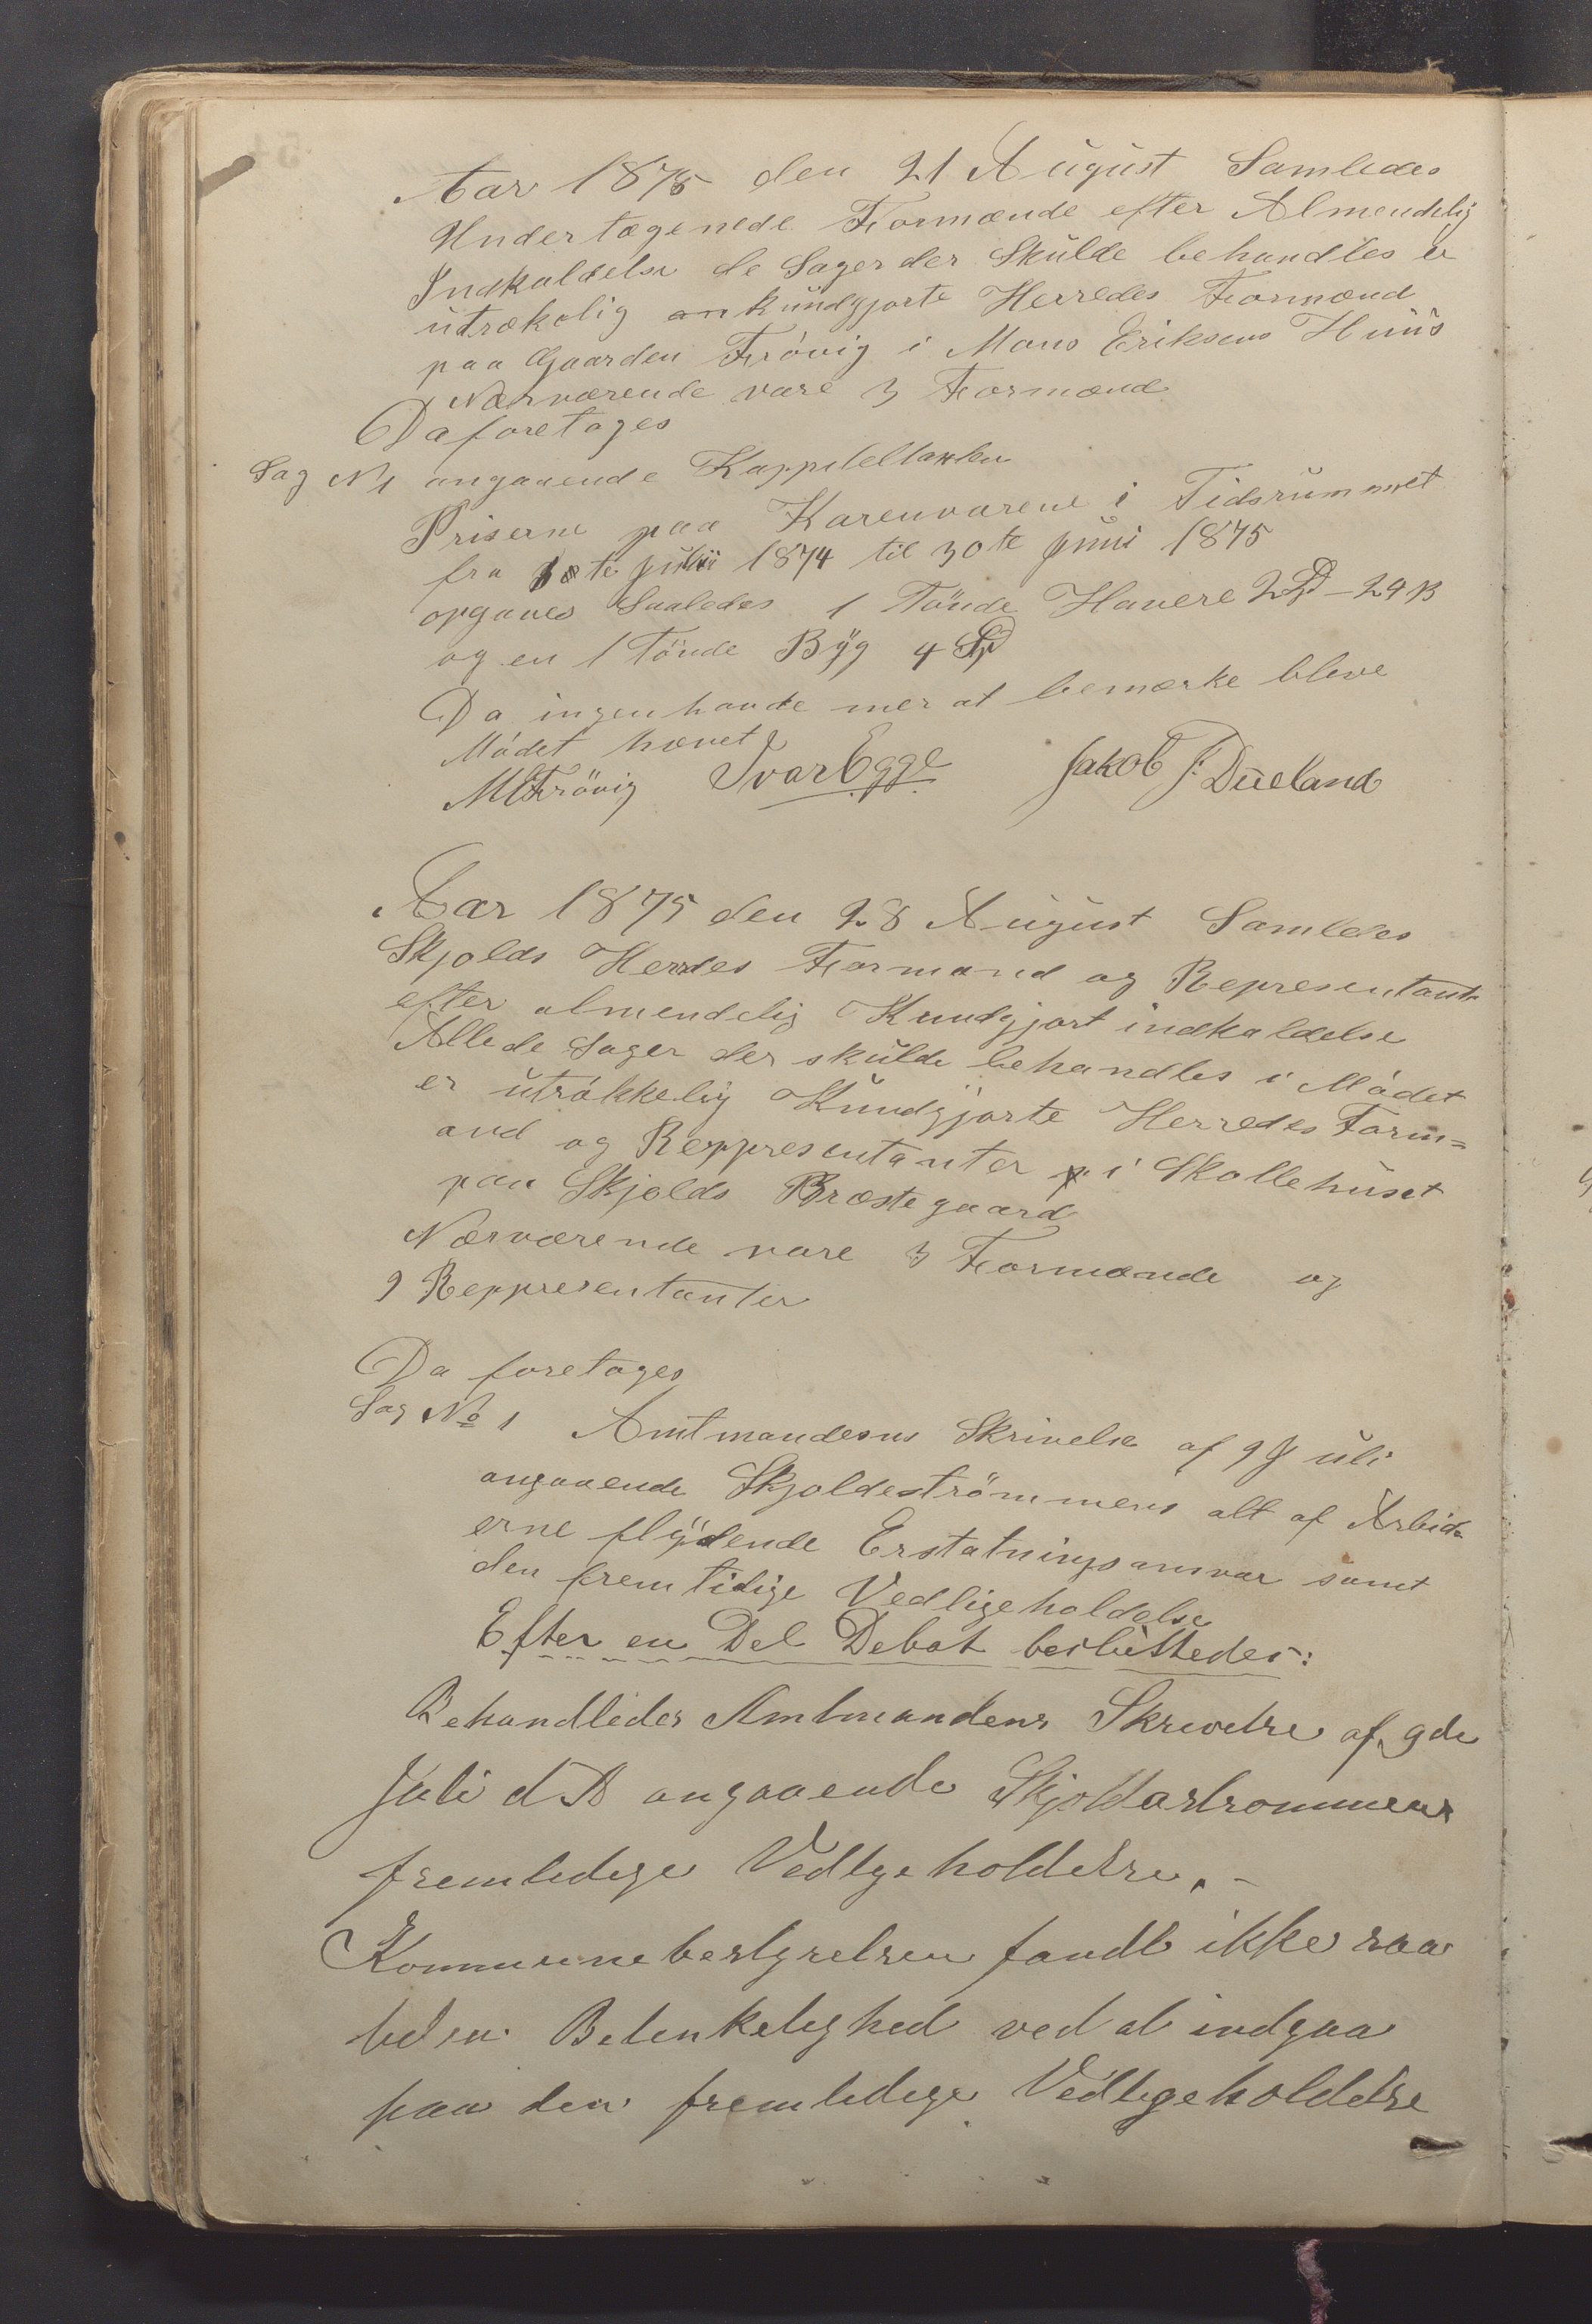 Aar 1875 den 21 August Samledes
Undertægenede Formænde efter Almendelig
Indkaldelse de Sager der Skulde behandles er
utrækelig kundgjorte Herredes Formænd
paa Gaarden Frövig i Mons Eriksens Huus
Nærværende vare 3 Formænd
Da foretages
Sag N 1 angaaende Kappiteltaxten
Priserne paa Kornvarene i Tidsrummet
fra 1ste Julii 1874 til 30te Juni 1875
opgaves Saaledes 1 Tönde Havere 2 Spd - 24 ß
og en 1 Tönde Byg 4 Spd
Da ingen havde mer at bemærke bleve
Mödet hævet
M E Frövig Ivar Egge Jakob J. Dueland
Aar 1875 den 28 August Samledes
Skjolds Herredes Formænd og Representant
efter almendelig Kundgjort indkaldelse
Alle de Sager der skulde behandles i Mödet
er utrökkelig Kundgjorte Herredes Form=
ænd og Reppresentanter i Skollehuset
paa Skjolds Præstegaard
Nærværende vare 3 Formænde og
9 Reppresentanter
Da foretages
Sag No 1 Amtmandesns Skrivelse af 9 Juli
angaaende Skjoldeströmmens alt af Arbeid
erne flydende Erstatningsansvar samt
den fremtidige Vedligeholdelse
Efter en Del Debat besluttedes:
Behandledes Amtmandens Skrivelse af 9de
Juli d A angaaende Skjoldastrømmens
fremtidige Vedligeholdelse. -
Kommunebestyrelsen fandt ikke saa
liden Betenkelighed ved at indgaa
paa den fremtidige Vedligeholdelse